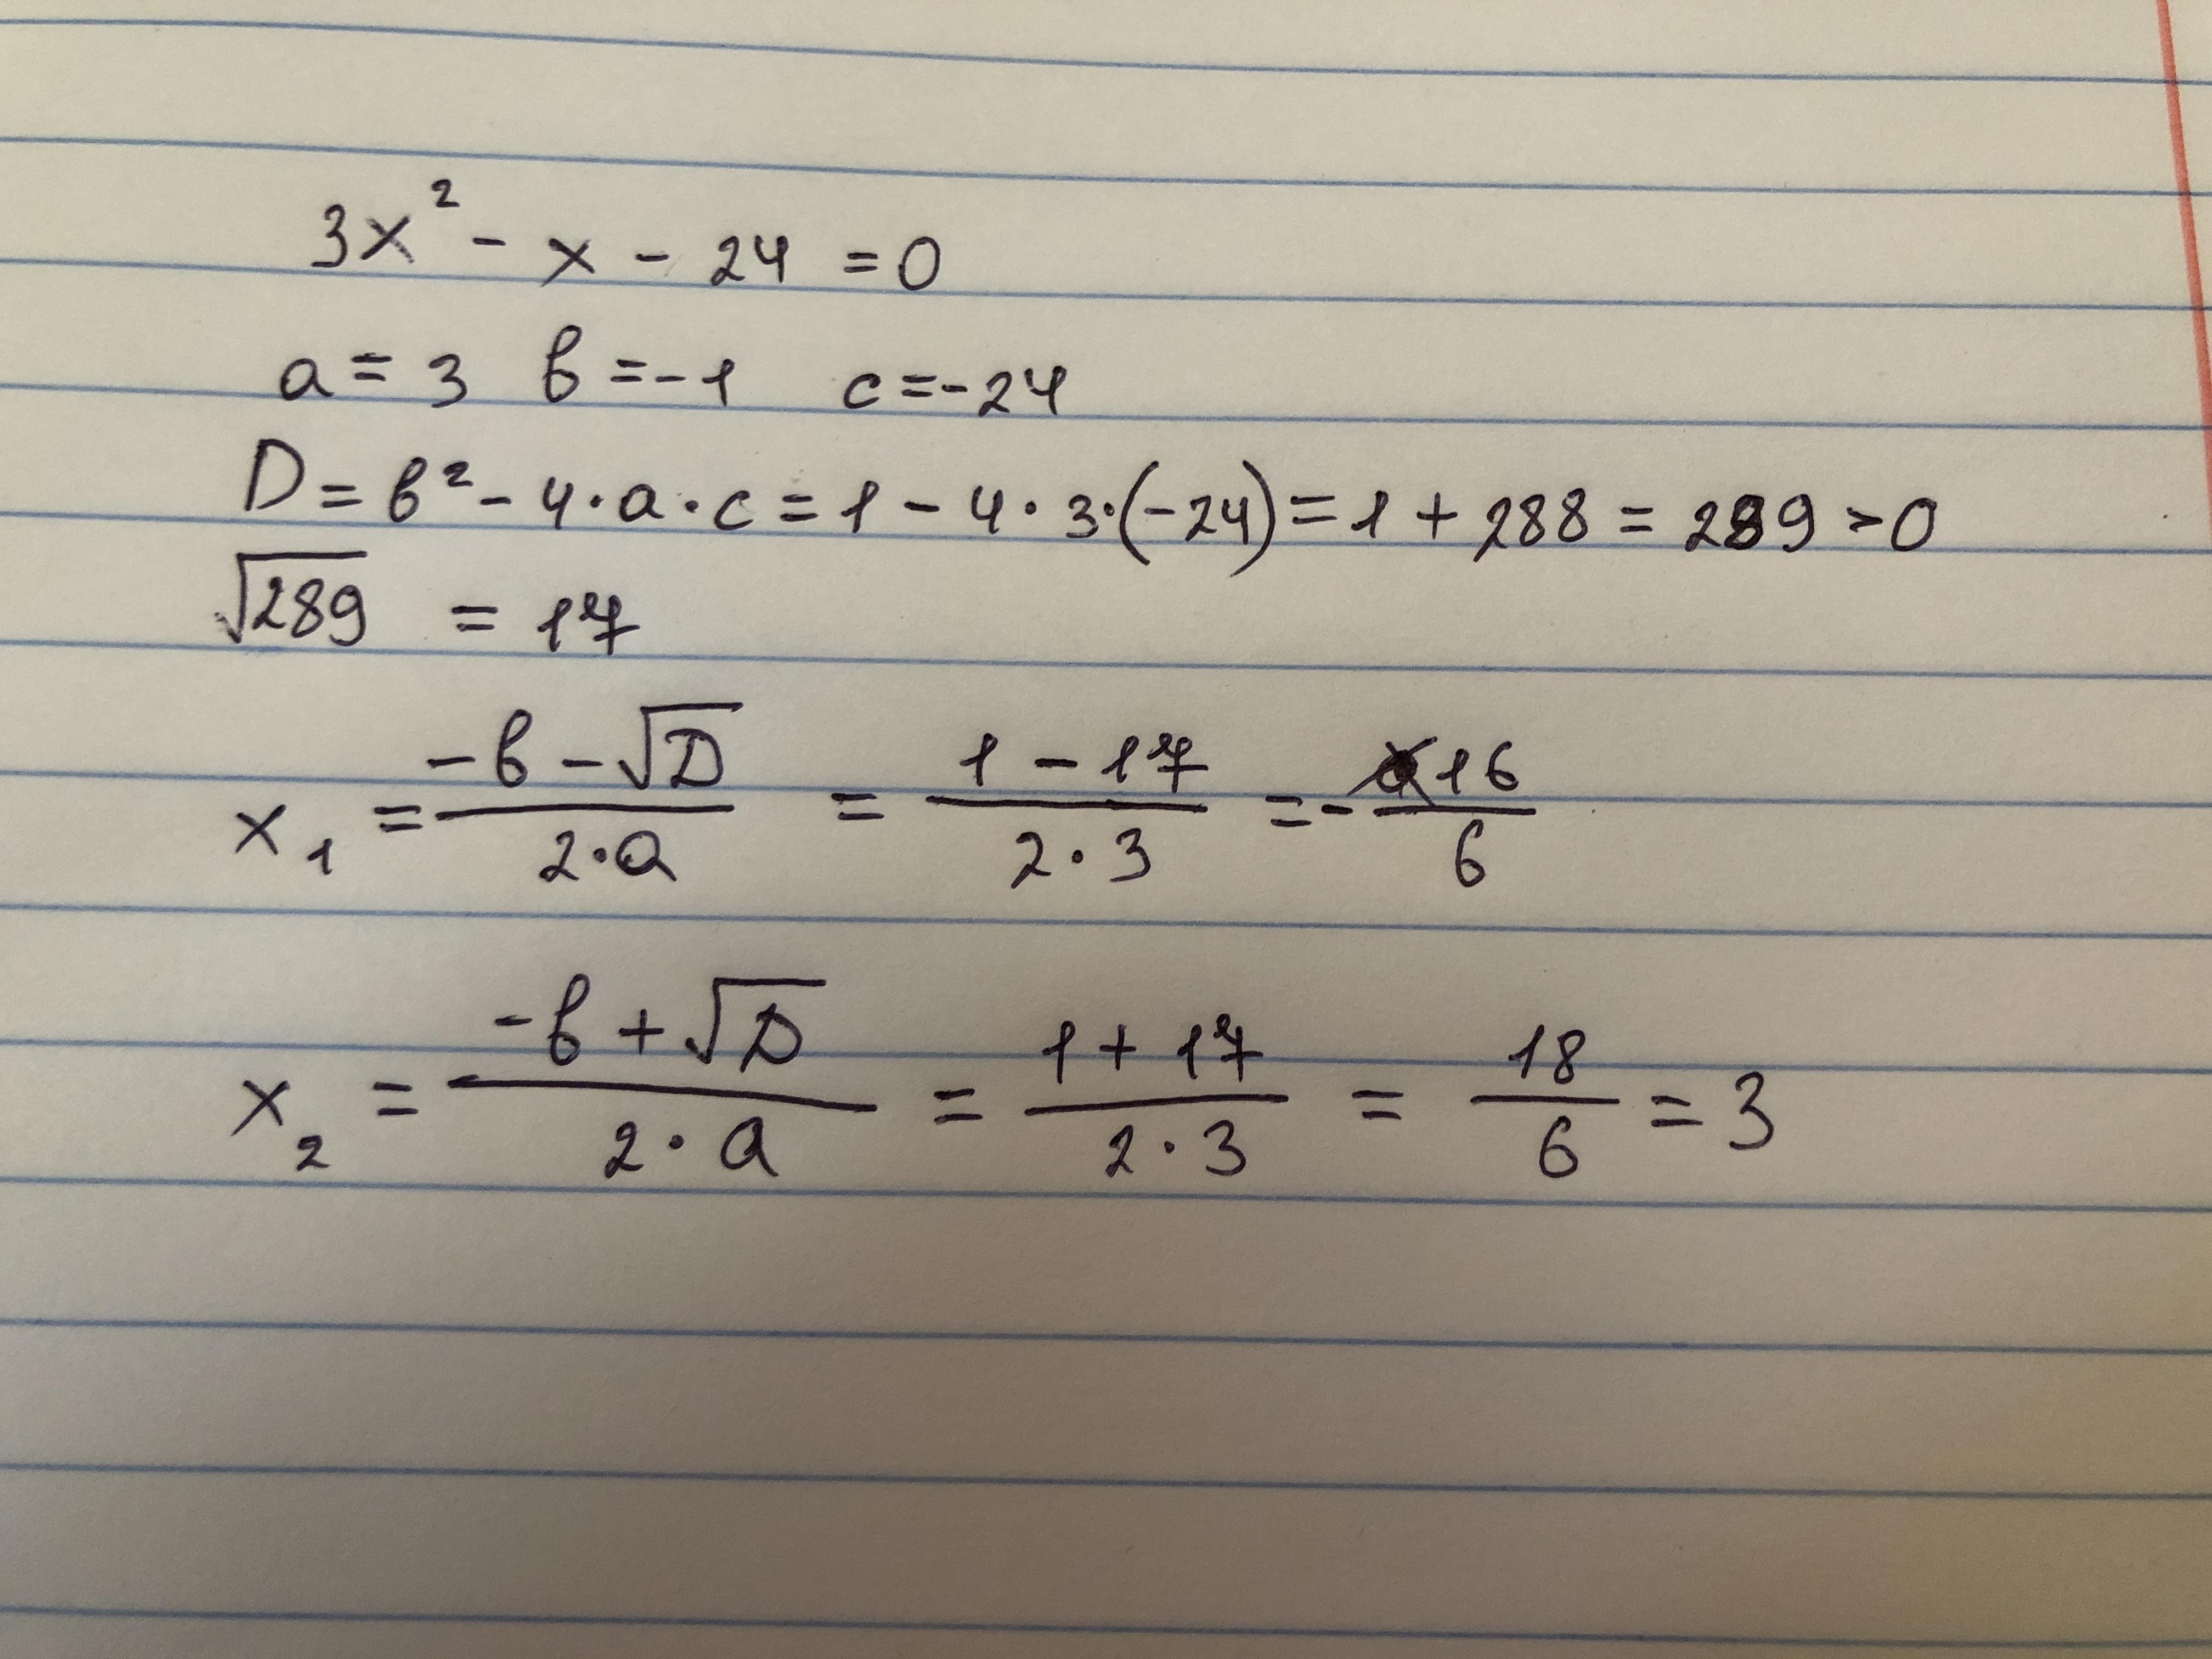 3x² - x - 24 = 0
a = 3 в = -1 c = -24
D = в² - 4·a·c = 1 - 4·3·(-24) = 1 + 288 = 289 > 0
√289 = 17
x₁ = (-в - √D)/(2·a) = (1 - 17)/(2·3) = -16/6
x₂ = (-в + √D)/(2·a) = (1 + 17)/(2·3) = 18/6 = 3